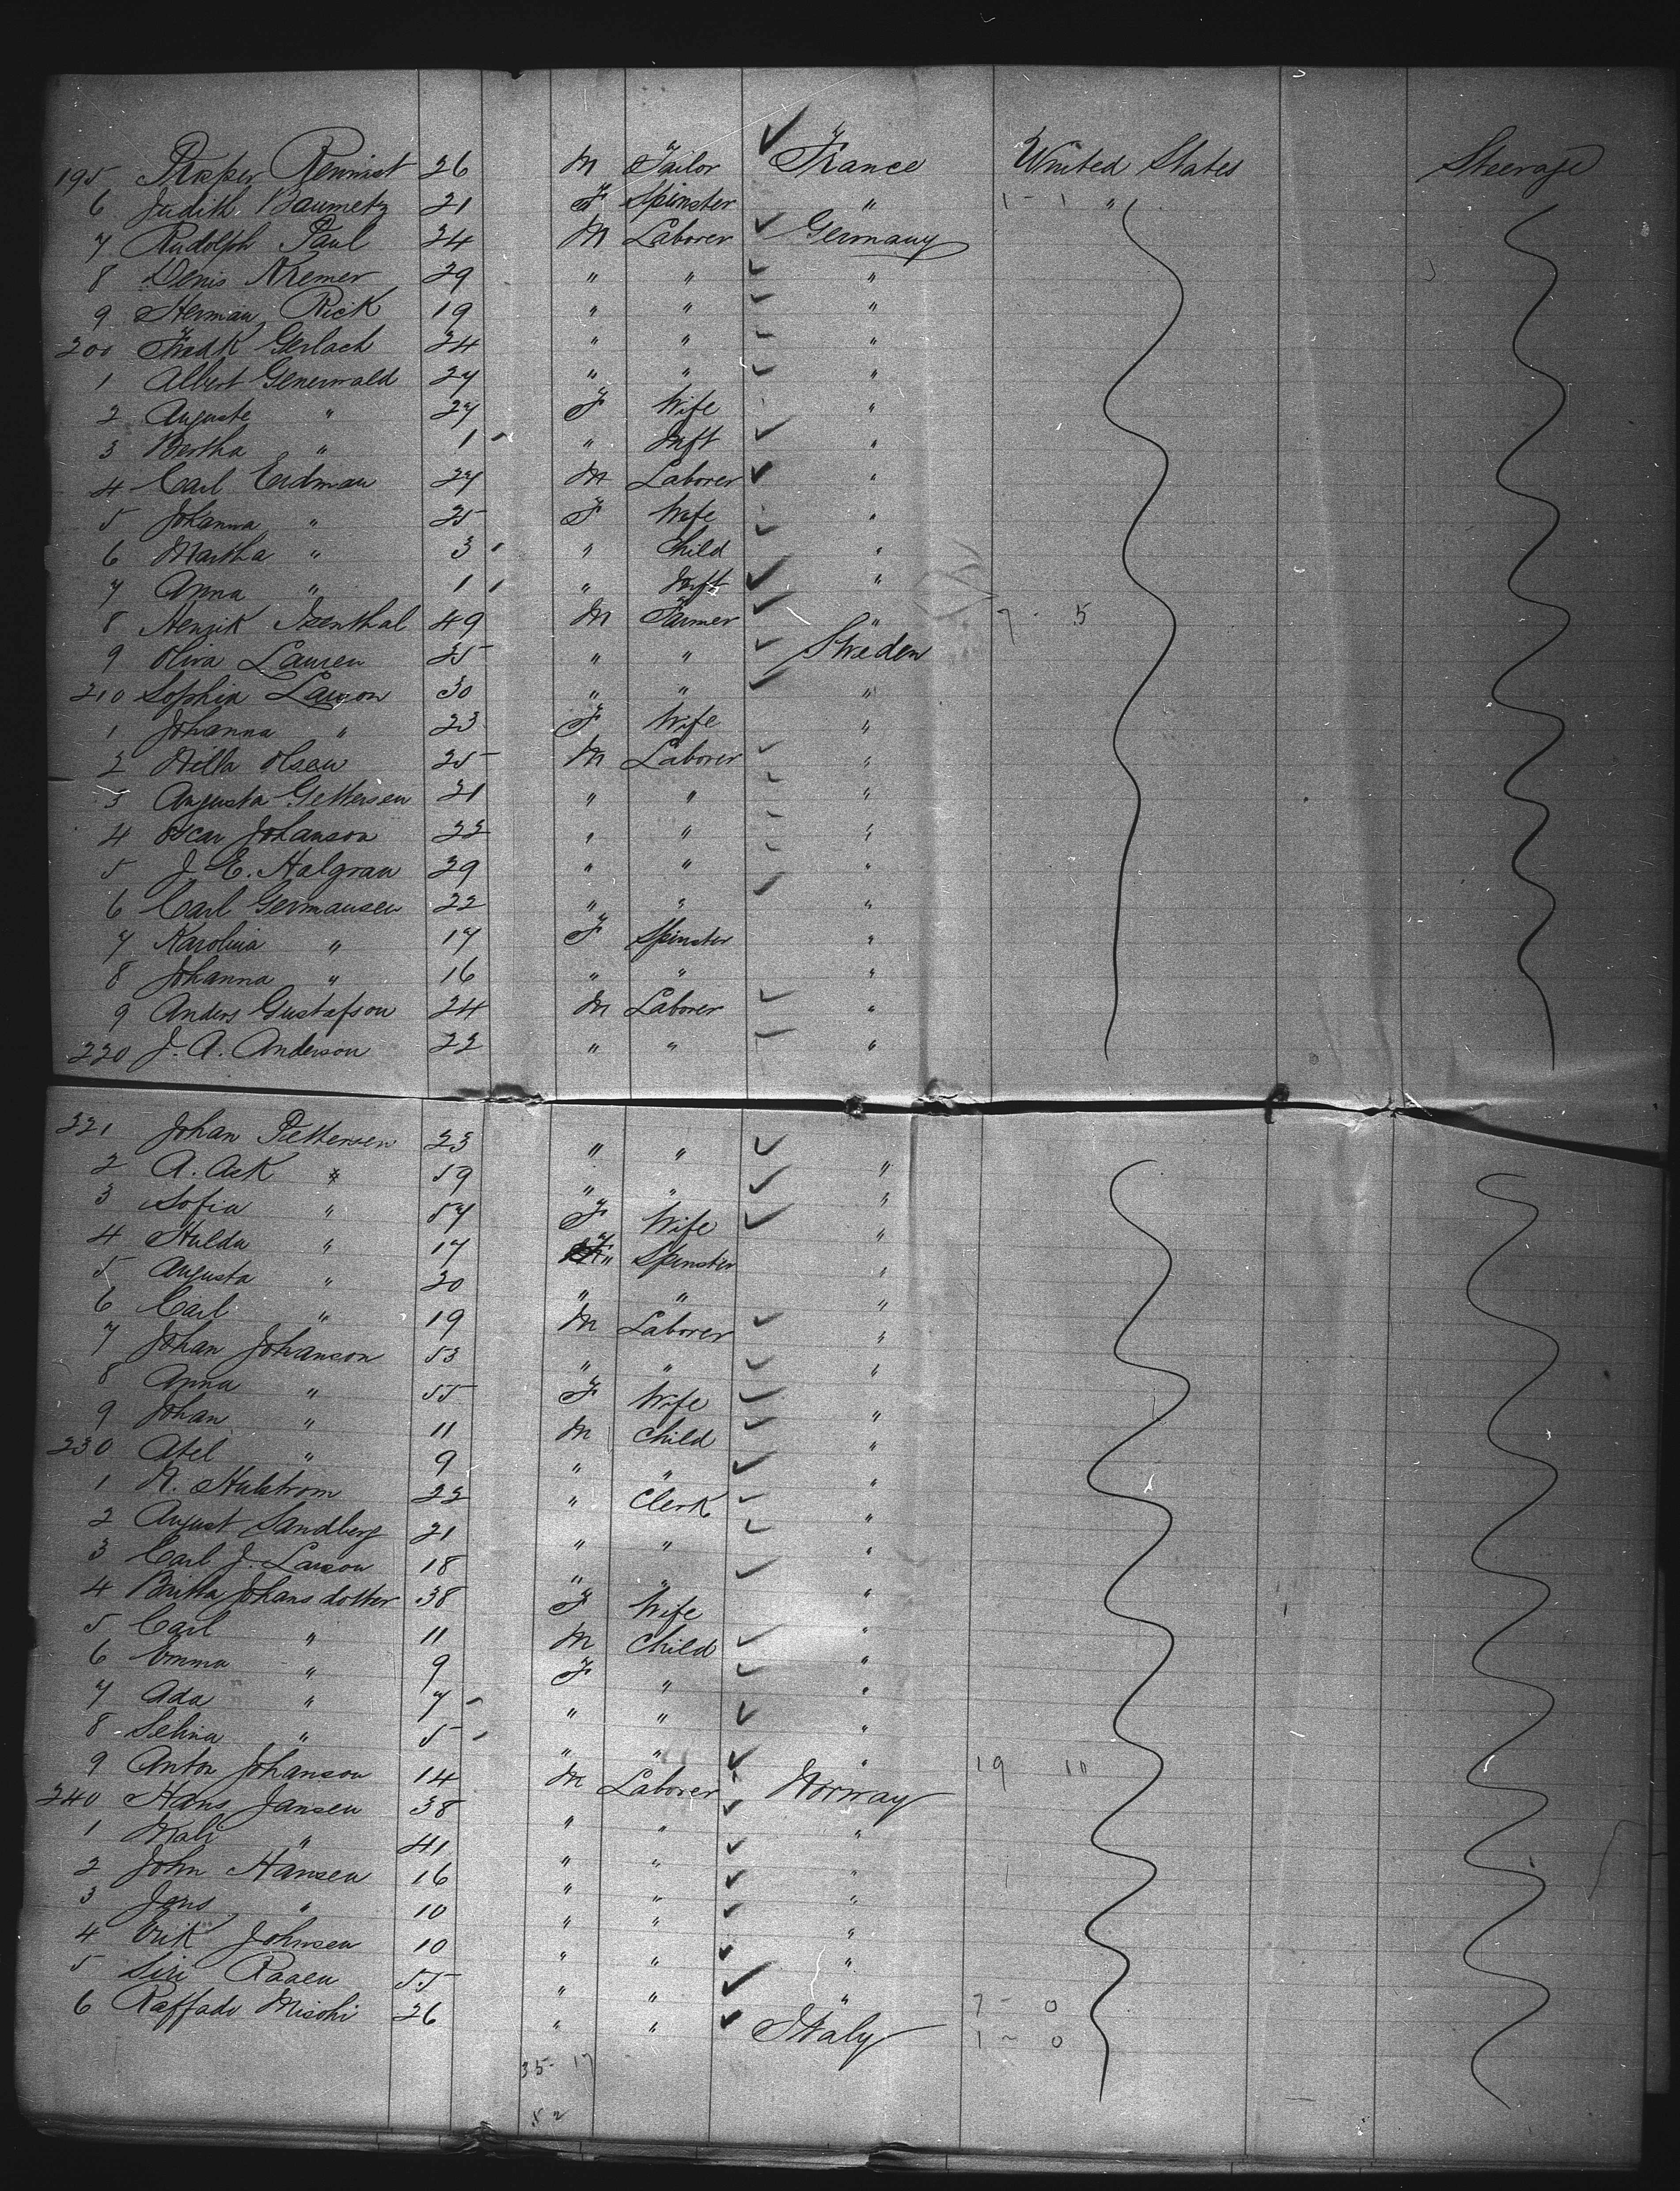 195 Prosper Rennist 26 M Tailor ✓ France United States Steerage
6 Judith Baumetz 21 F Spinster " 1 - 1 "
7 Rudolph Paul 24 M Laborer ✓ Germany
8 Denis Kremer 29 " " ✓ "
9 Herman Rick 19 " " ✓ "
200 Fredk Gerlach 24 " " ✓ "
1 Albert Generwald 27 " " ✓ "
2 Auguste " 27 F Wife "
3 Bertha " 1 " Inft ✓ "
4 Carl Erdman 27 M Laborer ✓ "
5 Johanna " 25 F Wife ✓ "
6 Martha " 3 " Child ✓ "
7 Anna " 1 " Inft ✓ "
8 Henrik Isenthal 49 M Farmer ✓ " 7 - 5
9 Oliva Lauren 25 " " ✓ Sweden
210 Sophia Larson 30 " " ✓ "
1 Johanna " 23 F Wife "
2 Nilla Olsen 25 M Laborer ✓ "
3 Augusta Gettersen 21 " " ✓ "
4 Oscar Johanson 22 " " ✓ "
5 J. E. Halgran 29 " " ✓ "
6 Carl Germansen 22 " " ✓ "
7 Karolina " 17 F Spinster "
8 Johanna " 16 " " "
9 Anders Gustafson 24 M Laborer ✓ "
220 J. A. Anderson 22 " " ✓ "
221 Johan Pettersen 23 " " ✓ "
2 A. Ask " 59 " " ✓ "
3 Sofia " 57 F Wife ✓ "
4 Hulda " 17 " Spinster "
5 Augusta " 20 " " "
6 Carl " 19 M Laborer ✓ "
7 Johan Johanson 53 " " ✓ "
8 Anna " 55 F Wife ✓ "
9 Johan " 11 M Child ✓ "
230 Axel " 9 " " ✓ "
1 N. Hulstrom 22 " Clerk ✓ "
2 August Sandberg 21 " " ✓ "
3 Carl J. Larson 18 " " ✓ "
4 Britta Johansdotter 38 F Wife "
5 Carl " 11 M Child ✓ "
6 Emma " 9 F " ✓ "
7 Ada " 7 " " ✓ "
8 Selina " 5 " " ✓ " 19 10
9 Anton Johanson 14 M Laborer Norway
240 Hans Jansen 38 " " ✓ "
1 Kali " 41 " " ✓ "
2 John Hansen 16 " " ✓ "
3 Jens " 10 " " ✓ "
4 Erik Johnsen 10 " " ✓ "
5 Siri Raaen 55 " " ✓ " 7 - 0
6 Raffado Misohi 26 " " ✓ Italy 1 - 0
35 - 17
52